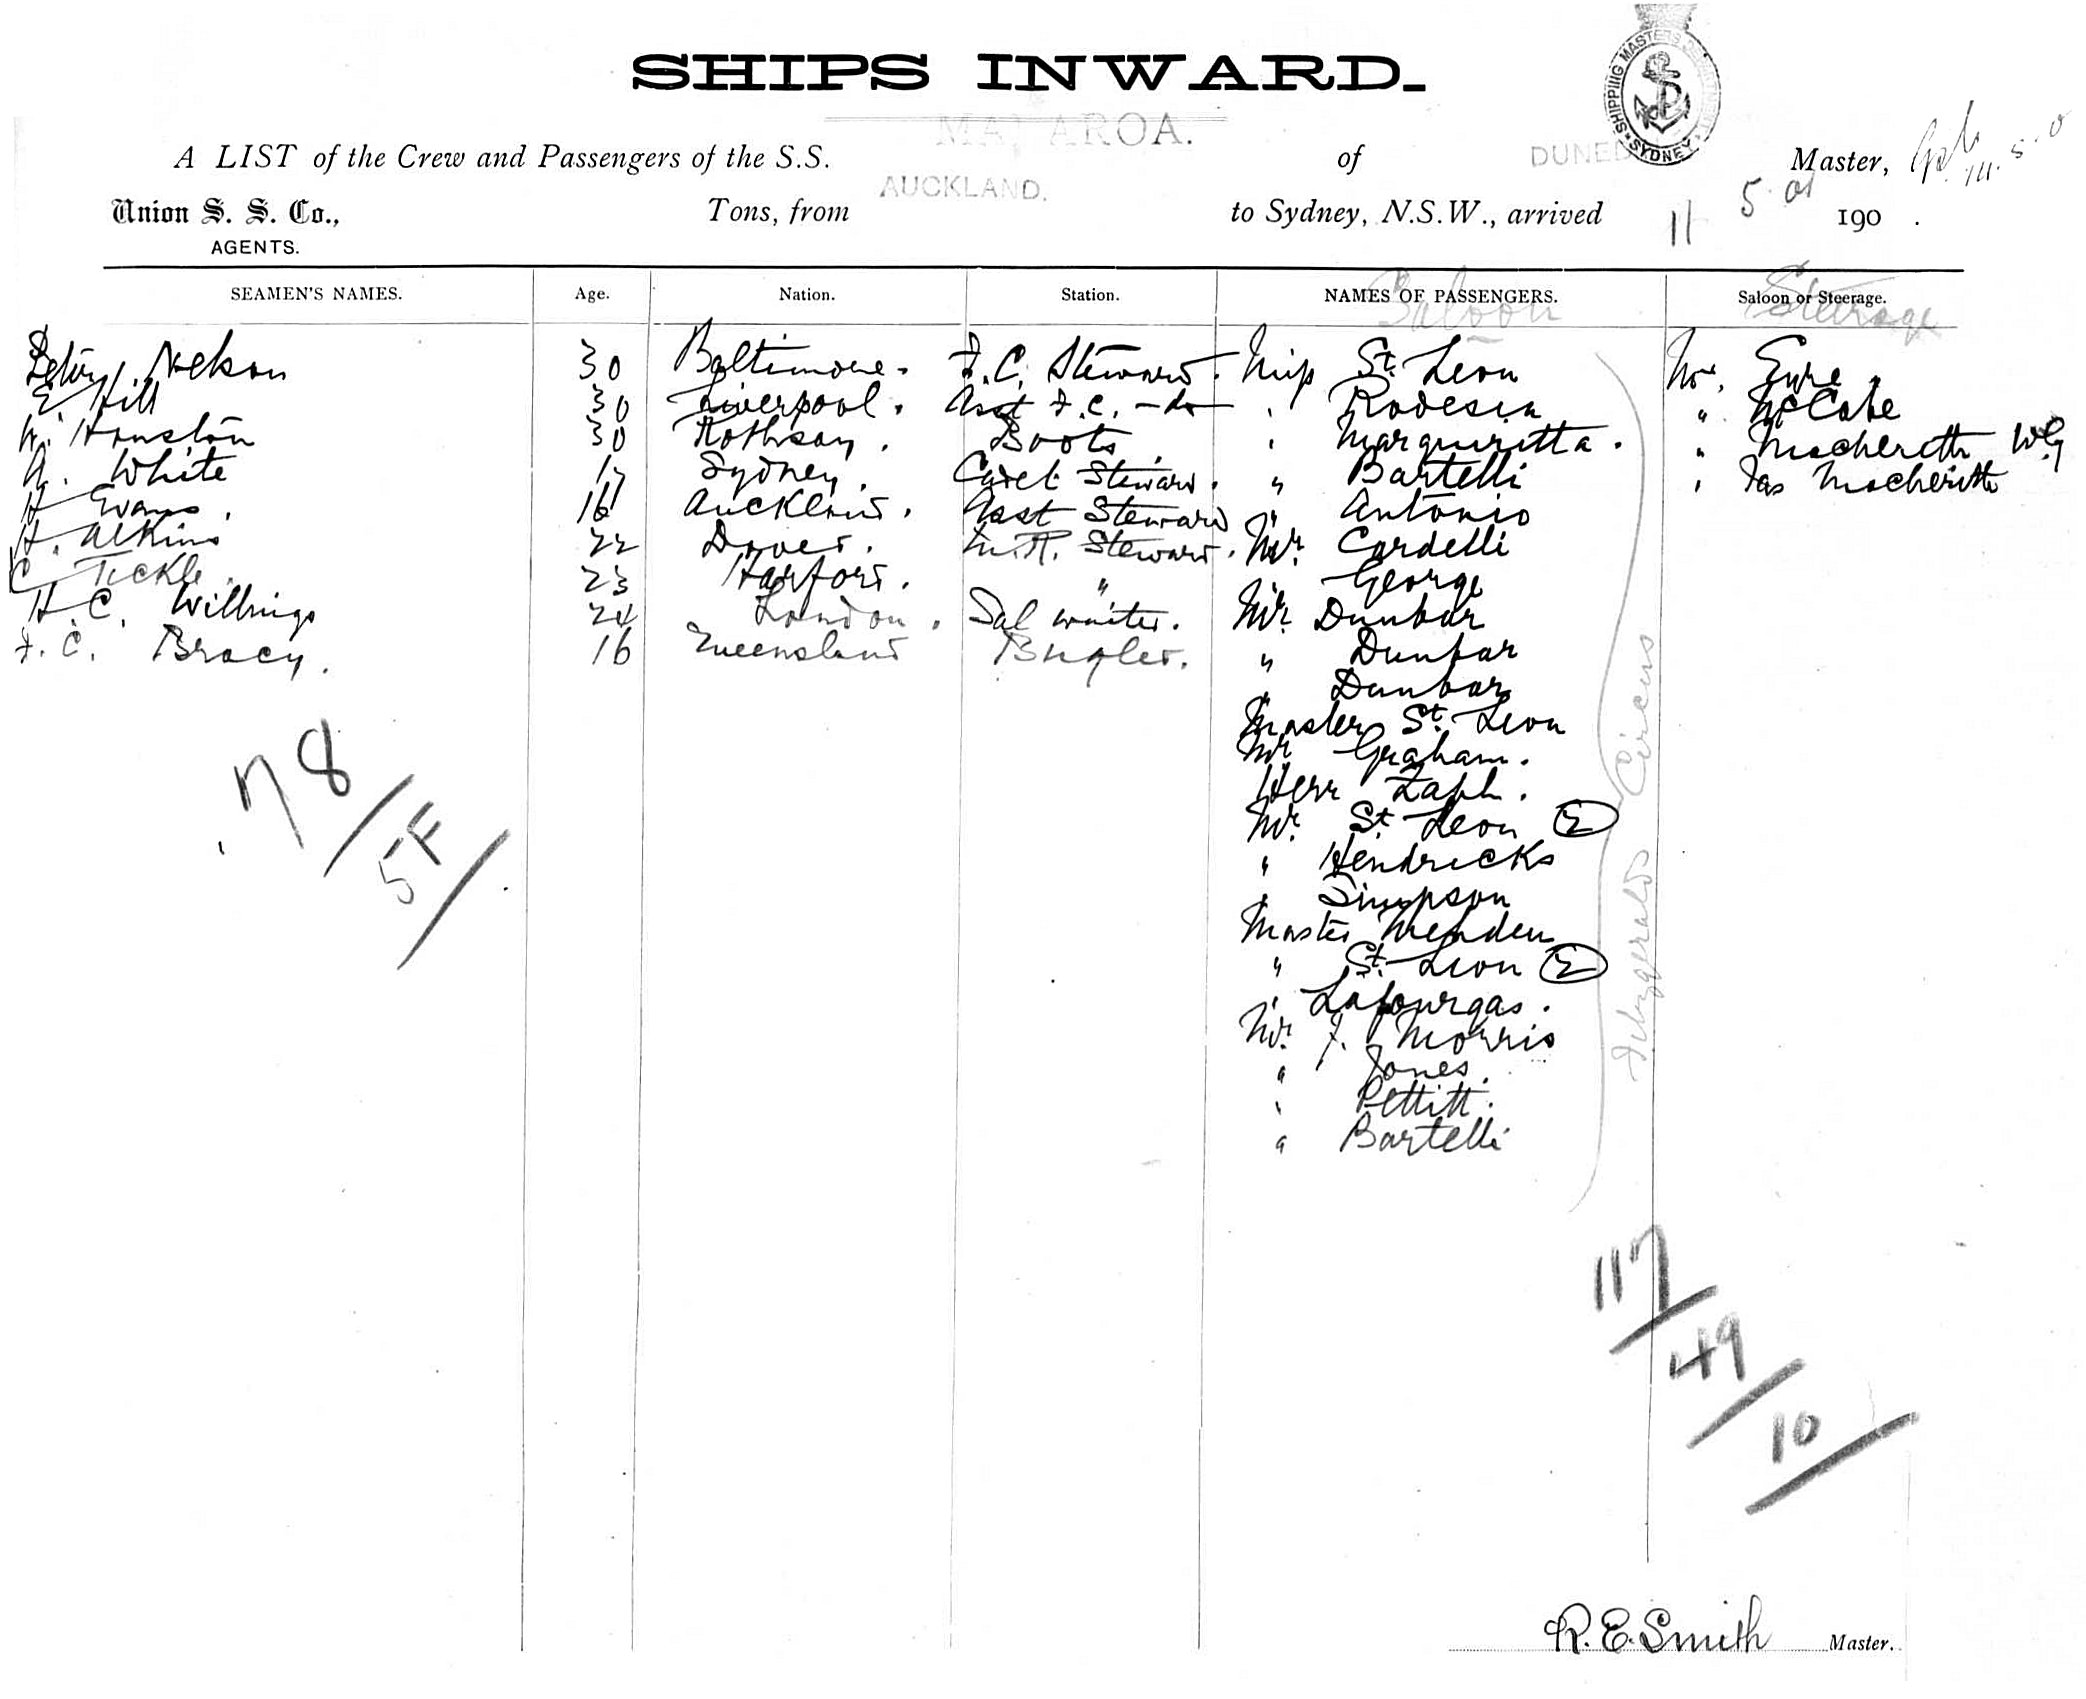 SHIPS INWARD.
SHIPPING MASTERS
SYDNEY
AROA.
A LIST of the Crew and Passengers of the S.S. of DUNED Master,
AUCKLAND.
Union S. S. Co., Tons, from to Sydney, N.S.W., arrived 11 5 01 190 .
AGENTS.
SEAMEN'S NAMES. Age. Nation. Station. NAMES OF PASSENGERS. Saloon or Steerage.
Saloon Steerage
Nelson 30 Baltimore. F.C. Steward. Miss St. Leon Mr. Eyre
E. Hill 30 Liverpool. Asst F.C. -do- " Rodesia " McCabe
W. Houston 30 Rothsay. Boots " Marguritta. " W.G.
A. White 17 Sydney. Cadet Steward. " Bartelli " Jas
H Evans. 16 Auckland. Asst Steward " Antonio
H. Atkins 22 Dover. Steward. Mr. Cardelli
C. Tickle. 23 Harford. " George
H. C. Willings 24 London. Sal waiter. Mr. Dunbar
F. C. Bracy. 16 Queensland Bugler. " Dunbar
" Dunbar
Master St. Leon
Mr Graham.
Herr Zaph.
Mr. St. Leon
" Hendricks
" Simpson
Master
" St. Leon
" Lafourgas.
Mr. J. Morris
" Jones.
" Pettitt.
" Bartelli
Fitzgeralds Circus
78/
5F/
117/
49/
10/
R. E. Smith Master.